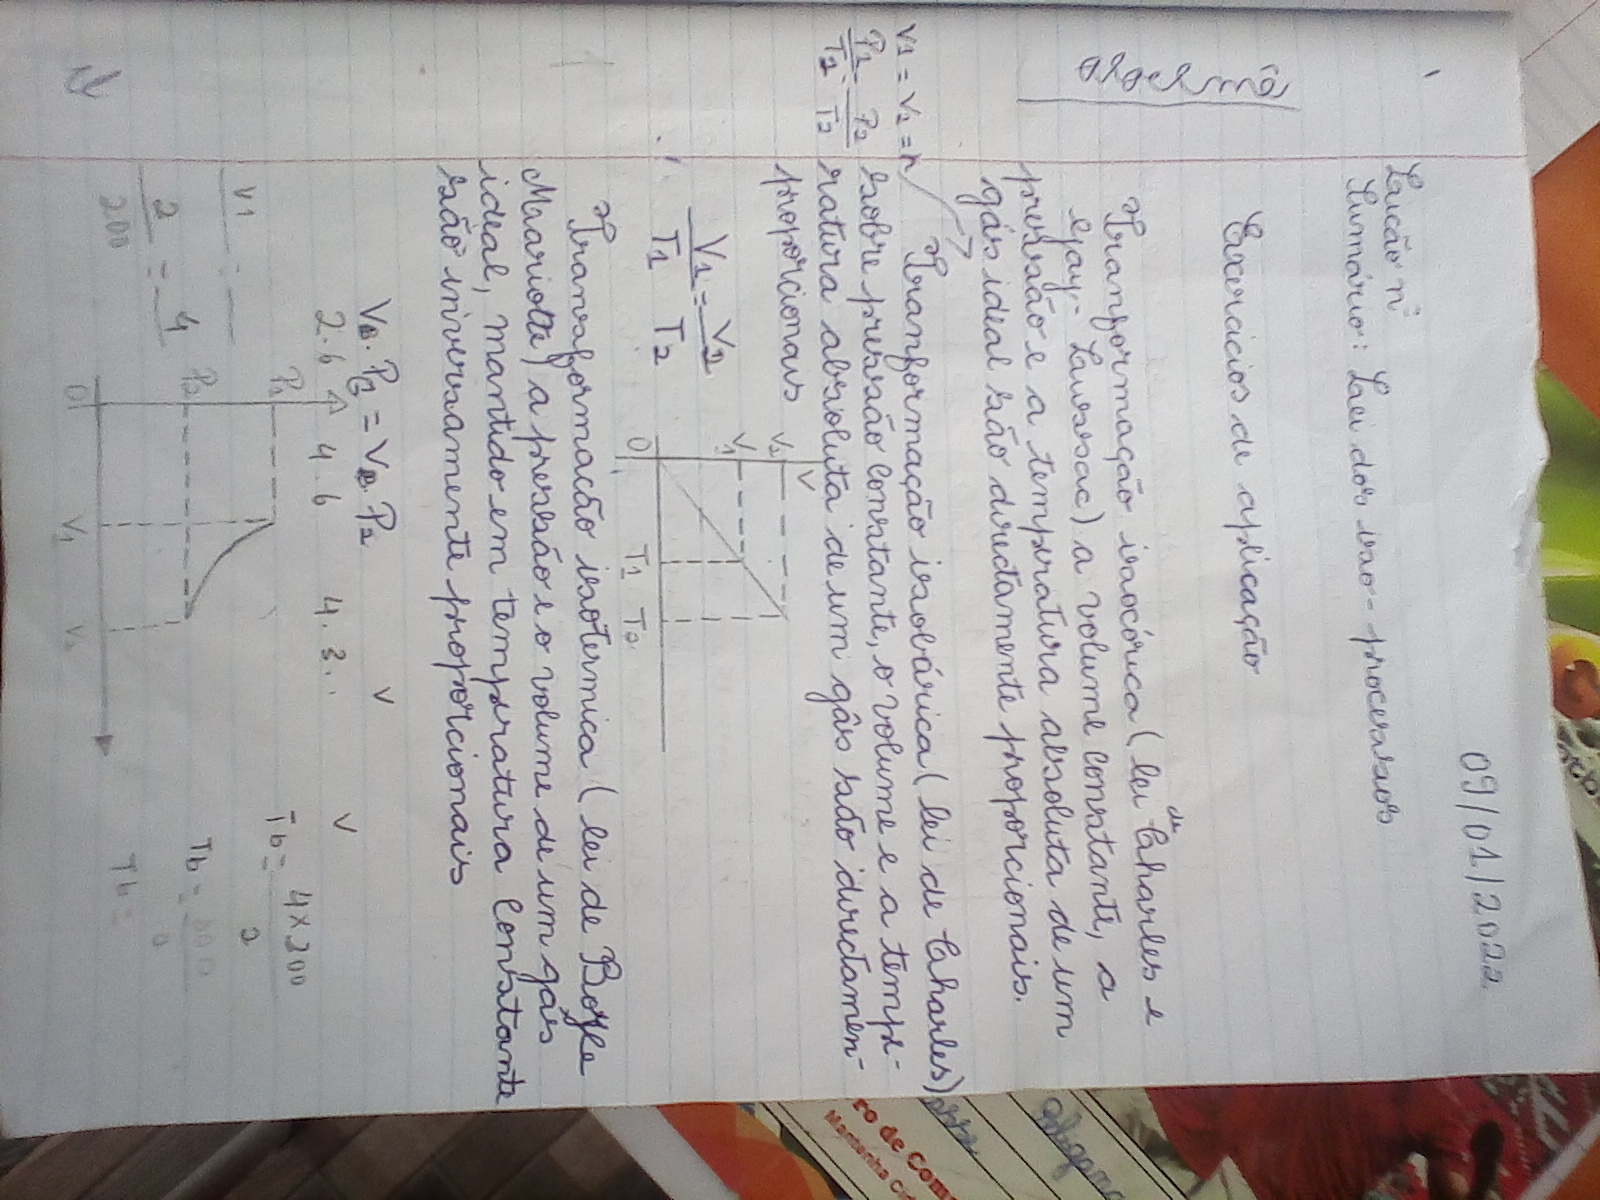 09/01/2022
Licão nº
Sumário: Lei dos iso-processos
Exercicios de aplicação
Tranformação isocórica (lei de Charles e
Gay-Lussac) a volume constante, a
pressão e a tempratura absoluta de um
gás ideal são directamente proporcionais.
V1 = V2 = n
P1 P2
T2 T2
Tranformação isobárica (lei de Charles)
sobre pressão constante, o volume e a tempe-
ratura absoluta de um gás são directamen-
proporcionais
V1 = V2
T1 T2
V
V2
V1
0 T1 T2
Transformacão isotermica (lei de Boyle
Mariotte) a pressão e o volume de um gás
ideal, mantido em tempratura constante
são inversamente proporcionais
V2. P1 = V2. P2
2.6 4.6 4.3..
V
V
P1
P2
0 V1 V2
V1
2 = 4
200
Tb = 4x300
2
Tb =
Tb =